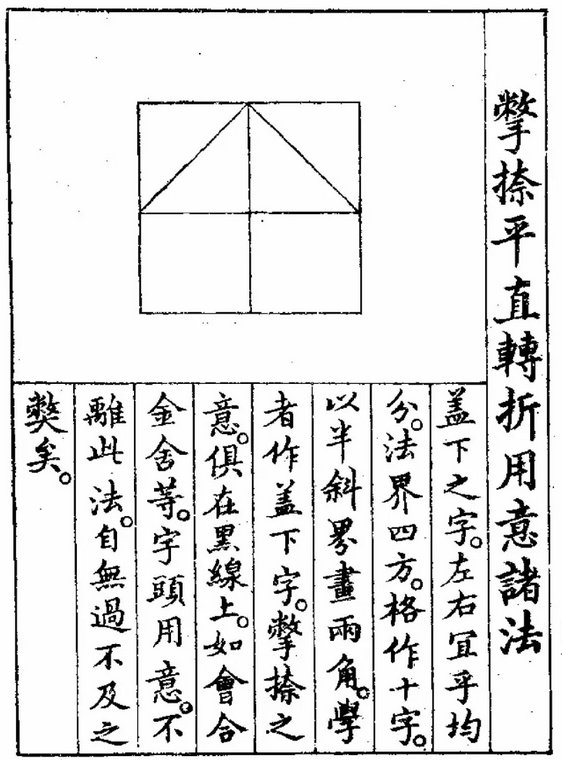 撆捺平直轉折用意諸法
盖下之字。左右冝乎均
分。法界四方。格作十字。
以半斜界畫兩角。學
者作盖下字。撆捺之
意。俱在黒線上。如會合
金舍等。字頭用意。不
離此法。自無過不及之
獘矣。